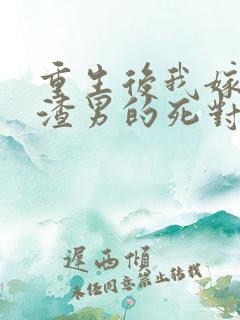 重生後我嫁
渣男的死對
遲西傾
未任同意禁止轉載